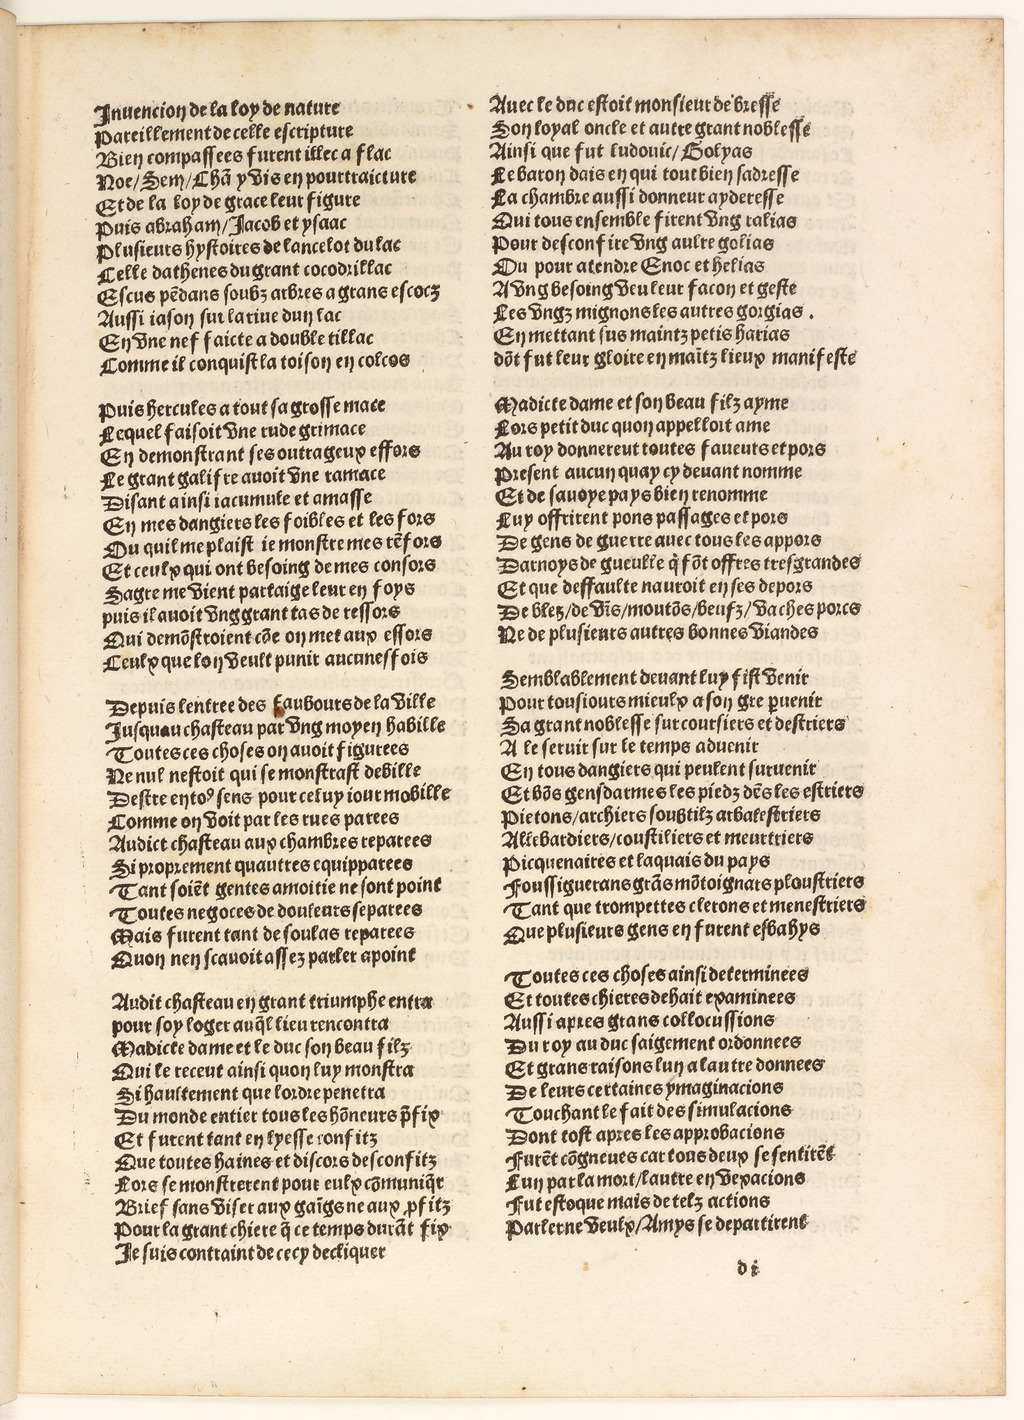 Inuencion de la loy de nature
Pareillement de celle escripture
Bien compassees furent illec a flac
Noe/Sem/Chã y vis en pourtraicture
Et de la loy de grace leur figure
Puis abraham/Jacob et ysaac
Plusieurs hystoires de lancelot du lac
Celle dathenes du grant cocodrillac
Escus pẽdans soubz arbres a grans escocz
Aussi iason sur la riue dun lac
En vne nef faicte a double tillac
Comme il conquist la toison en colcos
Puis hercules a tout sa grosse mace
Lequel faisoit vne rude grimace
En demonstrant ses outrageux effors
Le grant galifre auoit vne ramace
Disant ainsi iacumule et amasse
En mes dangiers les foibles et les fors
Ou quil me plaist ie monstre mes rẽfors
Et ceulx qui ont besoing de mes consors
Sagre me vient partaige leur en foys
puis il auoit vng grant tas de ressors
Qui demõstroient cõe on met aux essors
Ceulx que lon veult punir aucunesfois
Depuis lentree des faubours de la ville
Jusquau chasteau par vng moyen habille
Toutes ces choses on auoit figurees
Ne nul nestoit qui se monstrast debille
Destre en toꝰ sens pour celuy iour mobille
Comme on voit par les rues parees
Audict chasteau aux chambres reparees
Si proprement quautres equipparees
Tant soiẽt gentes amoitie ne sont point
Toutes negoces de douleurs separees
Mais furent tant de soulas reparees
Quon nen scauoit assez parler apoint
Audit chasteau en grant triumphe entra
pour soy loger auq̃l lieu rencontra
Madicte dame et le duc son beau filz
Qui le receut ainsi quon luy monstra
Si haultement que lordre penetra
Du monde entier tous les hõneurs p̃fix
Et furent tant en lyesse confitz
Que toutes haines et discors desconfitz
Lors se monstrerent pour eulx cõmuniq̃r
Brief sans viser aux gaĩgs ne aux ꝓfitz
Pour la grant chiere q̃ ce temps durãt fix
Je suis contraint de cecy decliquer
Auec le duc estoit monsieur de bresse
Son loyal oncle et autre grant noblesse
Ainsi que fut ludouic/Golyas
Le baron dais en qui tout bien sadresse
La chambre aussi donneur ayderesse
Qui tous ensemble firent vng ralias
Pour desconfire vng aultre golias
Ou pour atendre Enoc et helias
A vng besoing veu leur facon et geste
Les vngz mignons les autres gorgias .
En mettant sus maintz petis harias
dõt fut leur gloire en maĩtz lieux manifeste
Madicte dame et son beau filz ayme
Lors petit duc quon appellort ame
Au roy donnereut toutes faueurs et pors
Present aucun quay cy deuant nomme
Et de sauoye pays bien renomme
Luy offrirent pons passages et pors
De gens de guerre auec tous les appors
Darnoys de gueulle q̃ fõt offres tresgrandes
Et que deffaulte nauroit en ses depors
De blez/de vĩs/moutõs/beufz/vaches porcs
Ne de plusieurs autres bonnes viandes
Semblablement deuant luy fist venir
Pour tousiours mieulx a son gre ꝑuenir
Sa grant noblesse sur coursiers et destriers
A le seruir sur le temps aduenir
En tous dangiers qui peulent suruenir
Et bõs gensdarmes les piedz dẽs les estriers
Pietons/archiers soubtilz arbalestriers
Allebardiers/coustiliers et meurtriers
Picquenaires et laquais du pays
Foussiguerans grãs mõtoignars ploustriers
Tant que trompettes clerons et menestriers
Que plusieurs gens en furent esbahys
Toutes ces choses ainsi determinees
Et toutes chieres dehait examinees
Aussi apres grans collocussions
Du roy au duc saigement ordonnees
Et grans raisons lun a lautre donnees
De leurs certaines ymaginacions
Touchant le fait des simulacions
Dont tost apres les approbacions
Furẽt cõgneues car tous deux se sentirẽt
Lun par la mort/lautre en vexacions
Fut estoque mais de telz actions
Parler ne veulx/Amys se departirent
d i